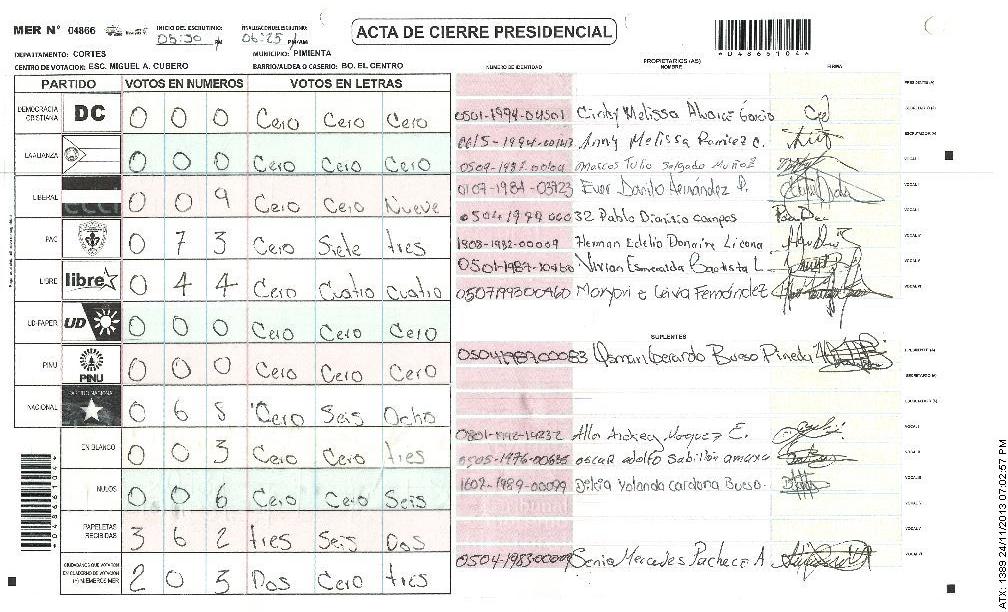 MER N° 04866 INICIO DEL ESCRUTINIO: 05:30 PM FINALIZACION DEL ESCRUTINIO: 06:25 PM/AM
ACTA DE CIERRE PRESIDENCIAL
*04866104*
DEPARTAMENTO: CORTES MUNICIPIO: PIMIENTA
CENTRO DE VOTACION: ESC. MIGUEL A. CUBERO BARRIO/ALDEA O CASERIO: BO. EL CENTRO
PARTIDO VOTOS EN NUMEROS VOTOS EN LETRAS
DEMOCRACIA CRISTIANA DC 0 0 0 Cero Cero Cero
LA ALIANZA 0 0 0 Cero Cero Cero
LIBERAL 0 0 9 Cero Cero Nueve
PAC 0 7 3 Cero Siete tres
LIBRE libre 0 4 4 Cero Cuatro cuatro
UD-FAPER UD 0 0 0 Cero Cero Cero
PINU PINU 0 0 0 Cero Cero Cero
NACIONAL PARTIDO NACIONAL 0 6 8 Cero Seis Ocho
EN BLANCO 0 0 3 Cero Cero tres
NULOS 0 0 6 Cero Cero Seis
PAPELETAS RECIBIDAS 3 6 2 tres Seis Dos
CIUDADANOS QUE VOTARON EN CUADERNO DE VOTACION (+) MIEMBROS MER 2 0 3 Dos Cero tres
NUMERO DE IDENTIDAD PROPIETARIOS (AS) NOMBRE FIRMA
PRESIDENTE (A)
0501-1994-04501 Cindy Melissa Alvarez Garcia SECRETARIO (A)
Anny Melissa Ramirez ESCRUTADOR (A)
Marcos Tulio Salgado Muñoz VOCAL I
0107-1984-03923 Ever Danilo Hernández P.
Pablo Dionisio campos
Herman Edelio Donaire Licona
Vivian Esmeralda Bautista L.
0507199300460
SUPLENTES
Osman Gerardo Bueso Pineda
SECRETARIO (A)
ESCRUTADOR (A)
oscar adolfo Sabillon
1602-1989-00099 Yolanda Cardona Bueso.
Sonia Mercedes Pacheco A
*04866104*
ATX: 1389 24/11/2013 07:02:57 PM